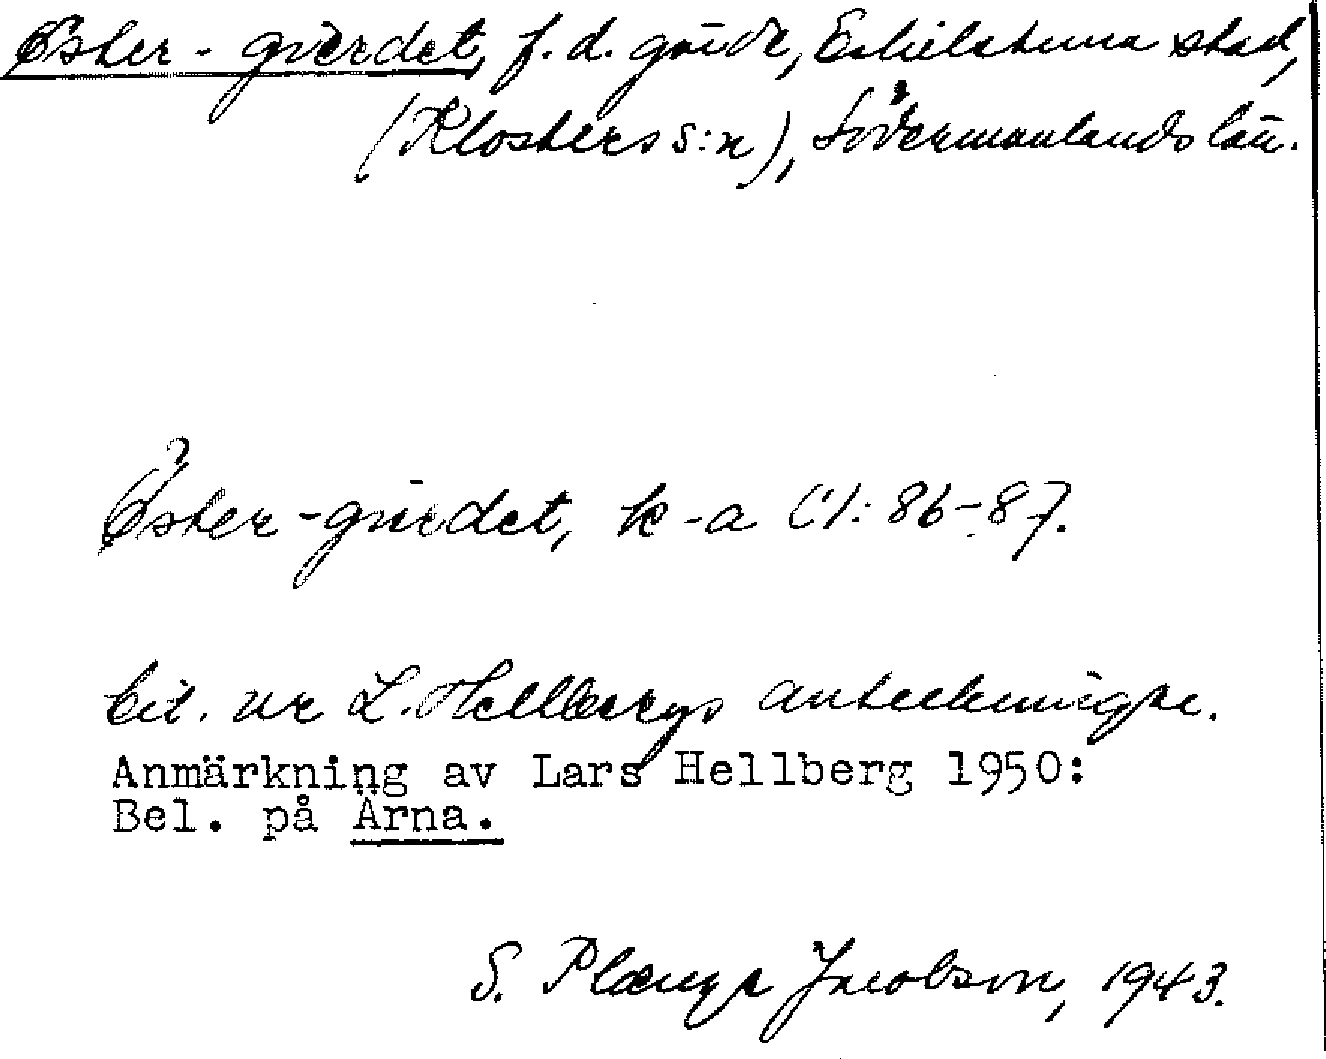 Öster-gärdet, f.d. gärde, Eskilstuna stad,
(Klosters s:n), Södermanlands län.
Öster-gärdet, k-a C1: 86-87.
Cit. ur L. Hellbergs anteckningar.
Anmärkning av Lars Hellberg 1950:
Bel. på Ärna.
S. Jacobson, 1943.